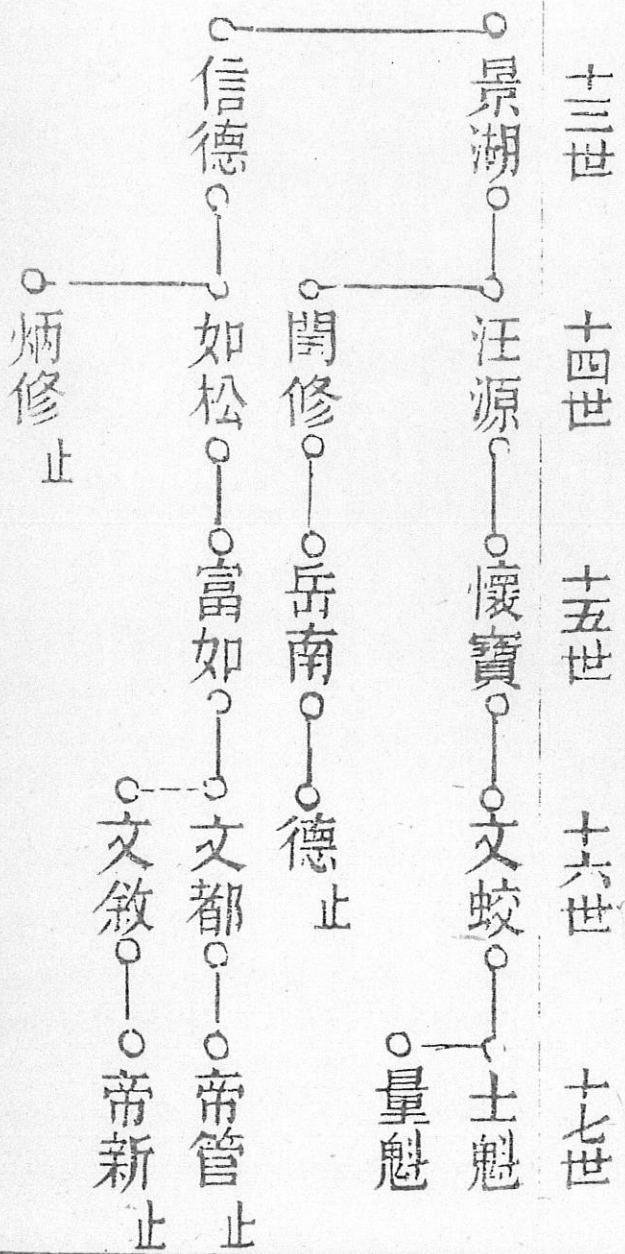 十三世
十四世
十五世
十六世
十七世
景湖
汪源
懷寶
文蛟
士魁
量魁
閏修
岳南
德
止
信德
如松
富如
文都
帝管
止
文敘
帝新
止
炳修
止